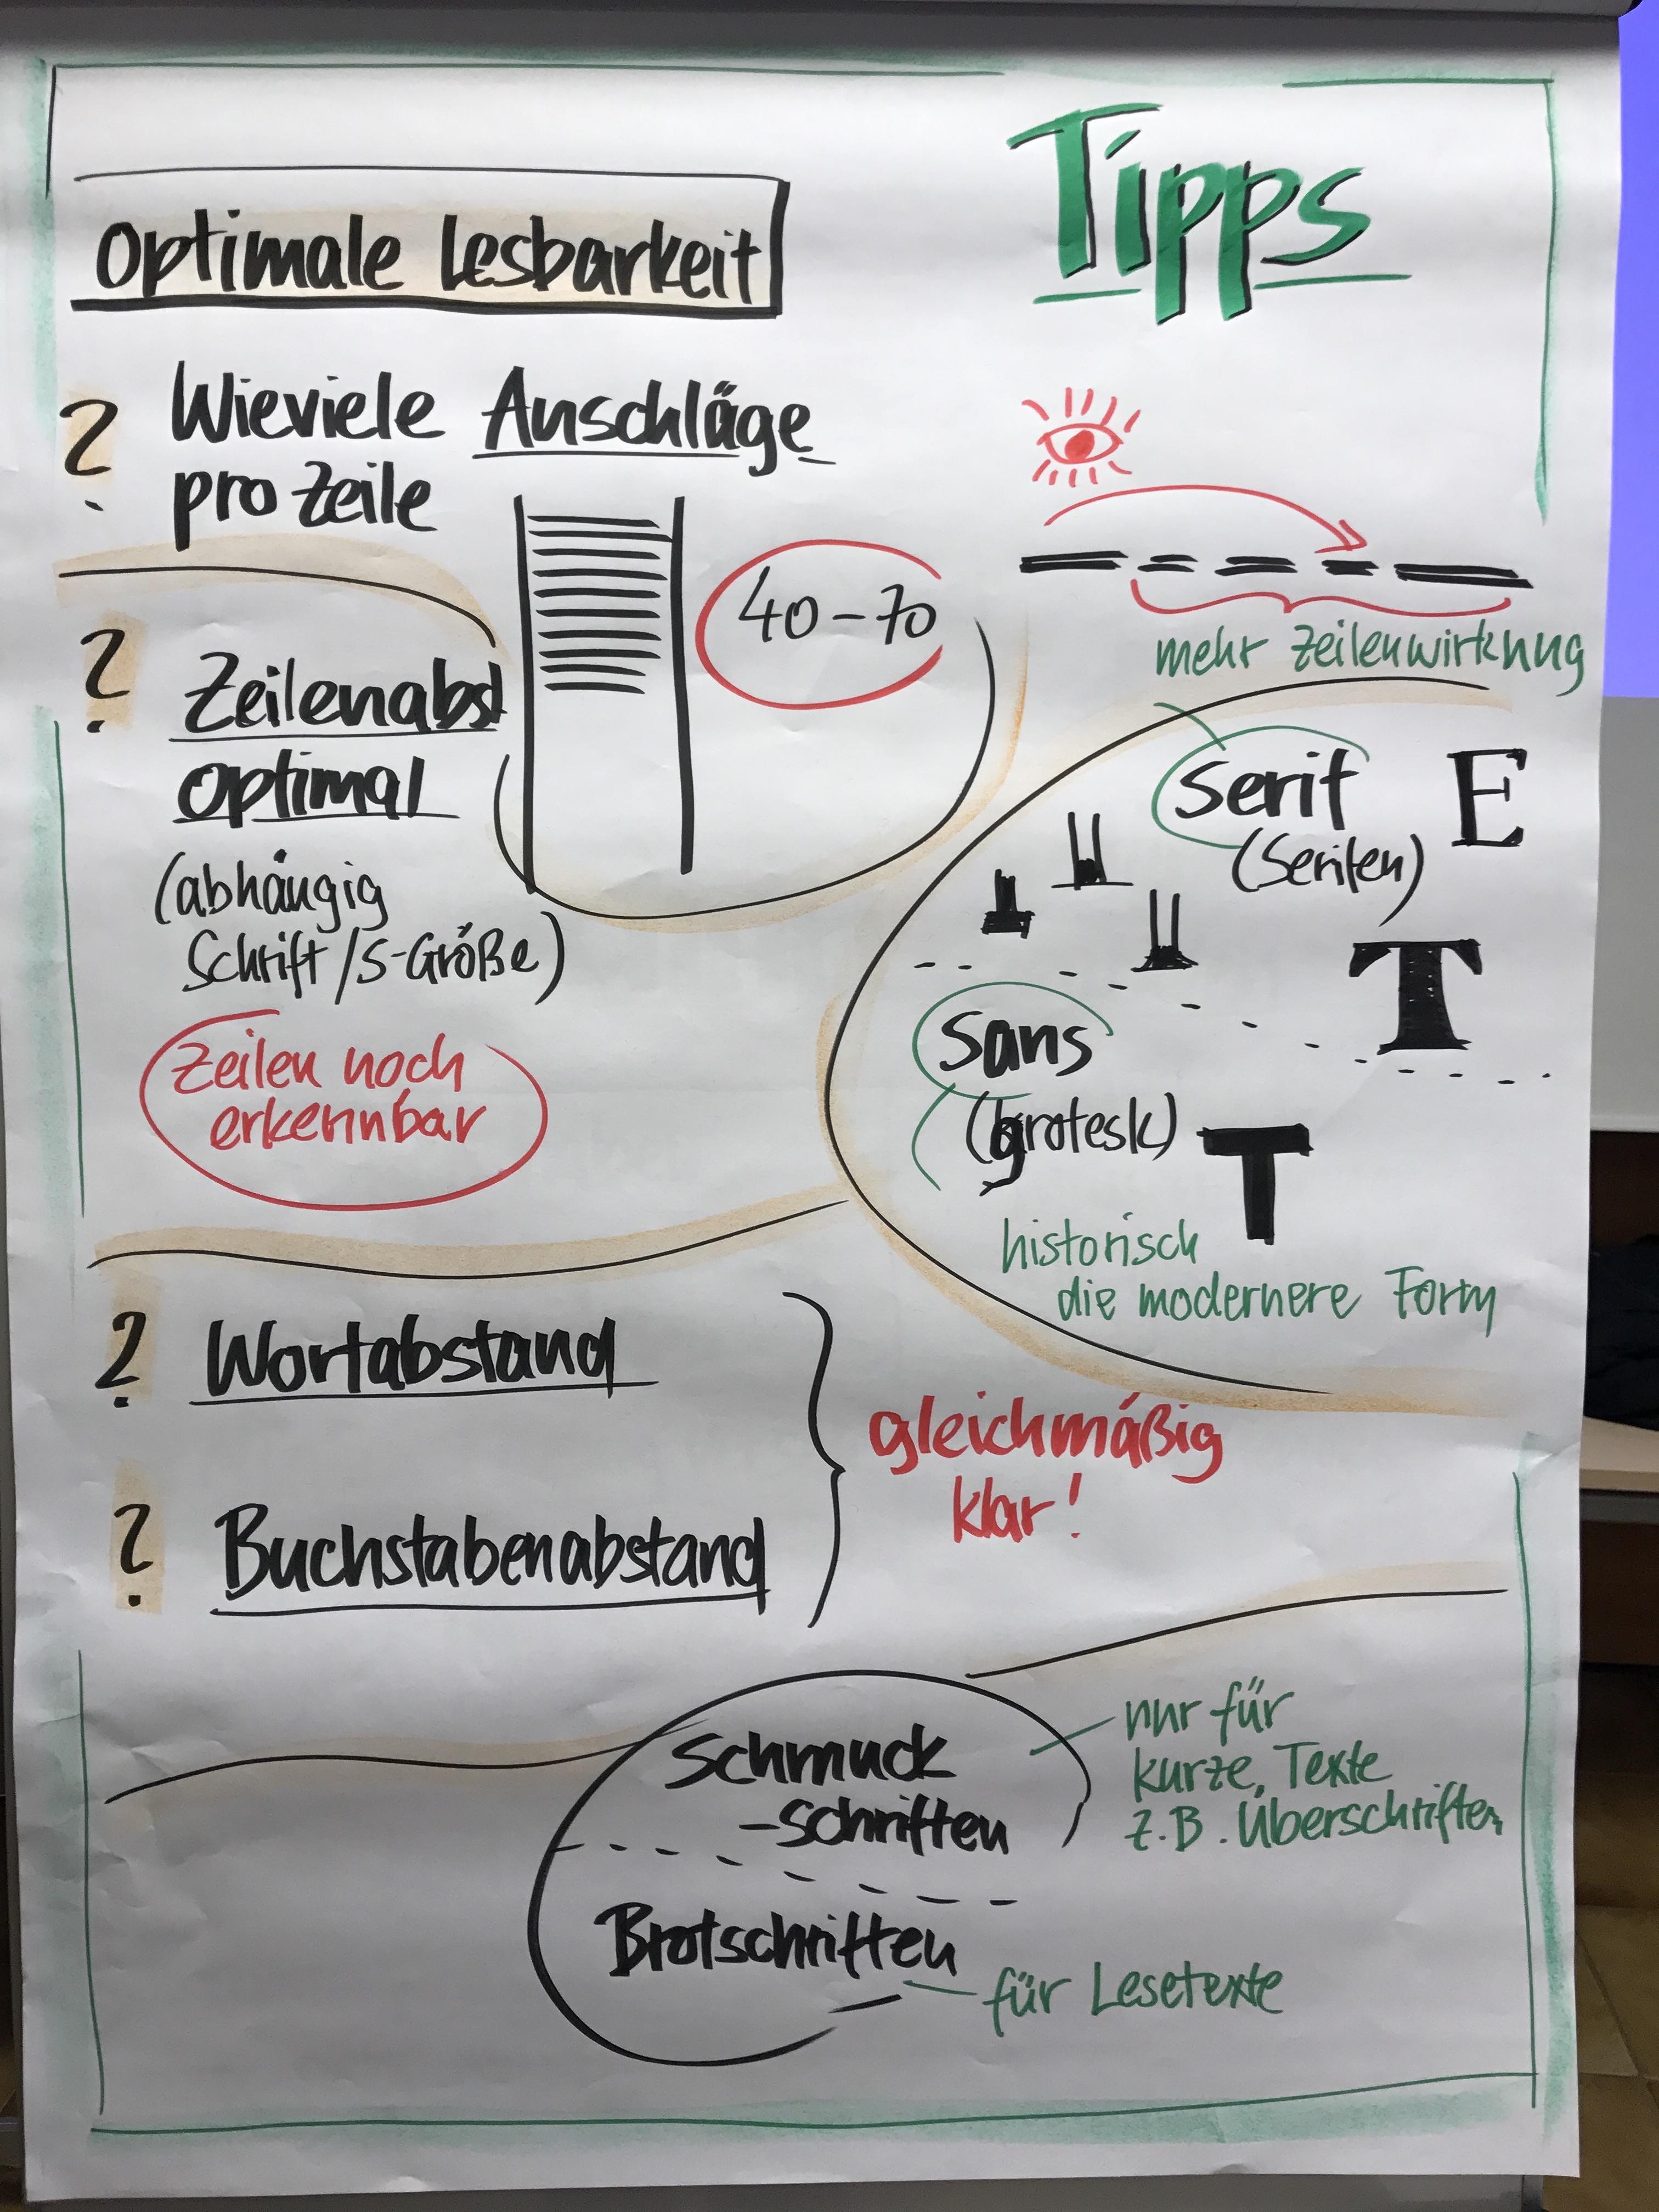 Tipps
Optimale Lesbarkeit
? Wieviele Anschläge
pro Zeile
40-70
mehr Zeilenwirkung
? Zeilenabst
optimal
(abhängig
Schrift/S-Größe)
Zeilen noch
erkennbar
Serif
(Serifen)
E
T
Sans
(grotesk)
T
historisch
die modernere Form
? Wortabstand
? Buchstabenabstand
gleichmäßig
klar!
Schmuck
-schriften
nur für
kurze, Texte
z.B. Überschriften
Brotschriften
für Lesetexte